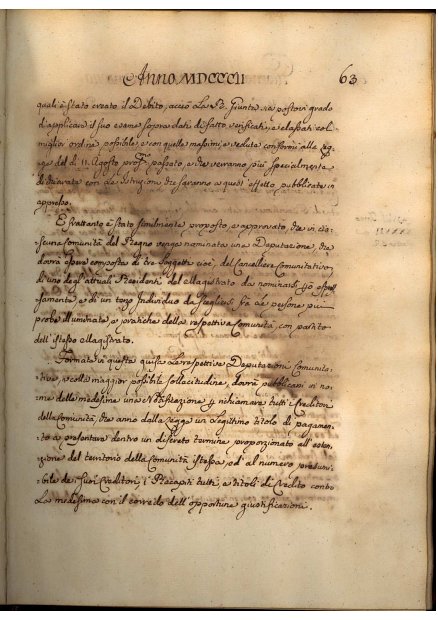 Anno MDCCCII 63
quali è stato creato il Debito, acciò La R. Giunta sia posta in grado
d'applicare il suo esame sopra dati di fatto verificati, e classati col
miglior ordine possibile, e con quelle massime, e vedute conformi alla Leg-
ge del dì 11. Agosto pross. passato, e che verranno più specialmente
dichiarate con le Istruzioni che saranno a quest'effetto pubblicate in
appresso.
E frattanto è stato similmente proposto, e approvato, che in cia-
scuna Comunità del Regno venga nominata una Deputazione, che
dovrà esser composta di tre Soggetti cioè, del Cancelliere Comunitativo,
di uno degli attuali Residenti del Magistrato da nominarsi espres-
samente, e di un terzo Individuo da scegliersi fra Le persone più
probe illuminate, e pratiche della respettiva Comunità, con partito
dell'istesso Magistrato.
Formate in questa guisa Le respettive Deputazioni Comunita-
tive, e colla maggior possibile sollecitudine, dovrà pubblicarsi in no-
me delle medesime una Notificazione p. richiamare tutti i Creditori
della Comunità, che anno dalla Legge un Legittimo titolo di pagamen-
to a presentare dentro un discreto termine proporzionato all'esten-
zione del territorio della Comunità istessa, ed al numero presumi-
bile dei suoi Creditori, i Recapiti tutti, e titoli di Credito contro
La medesima con il corredo dell'opportune giustificazioni.